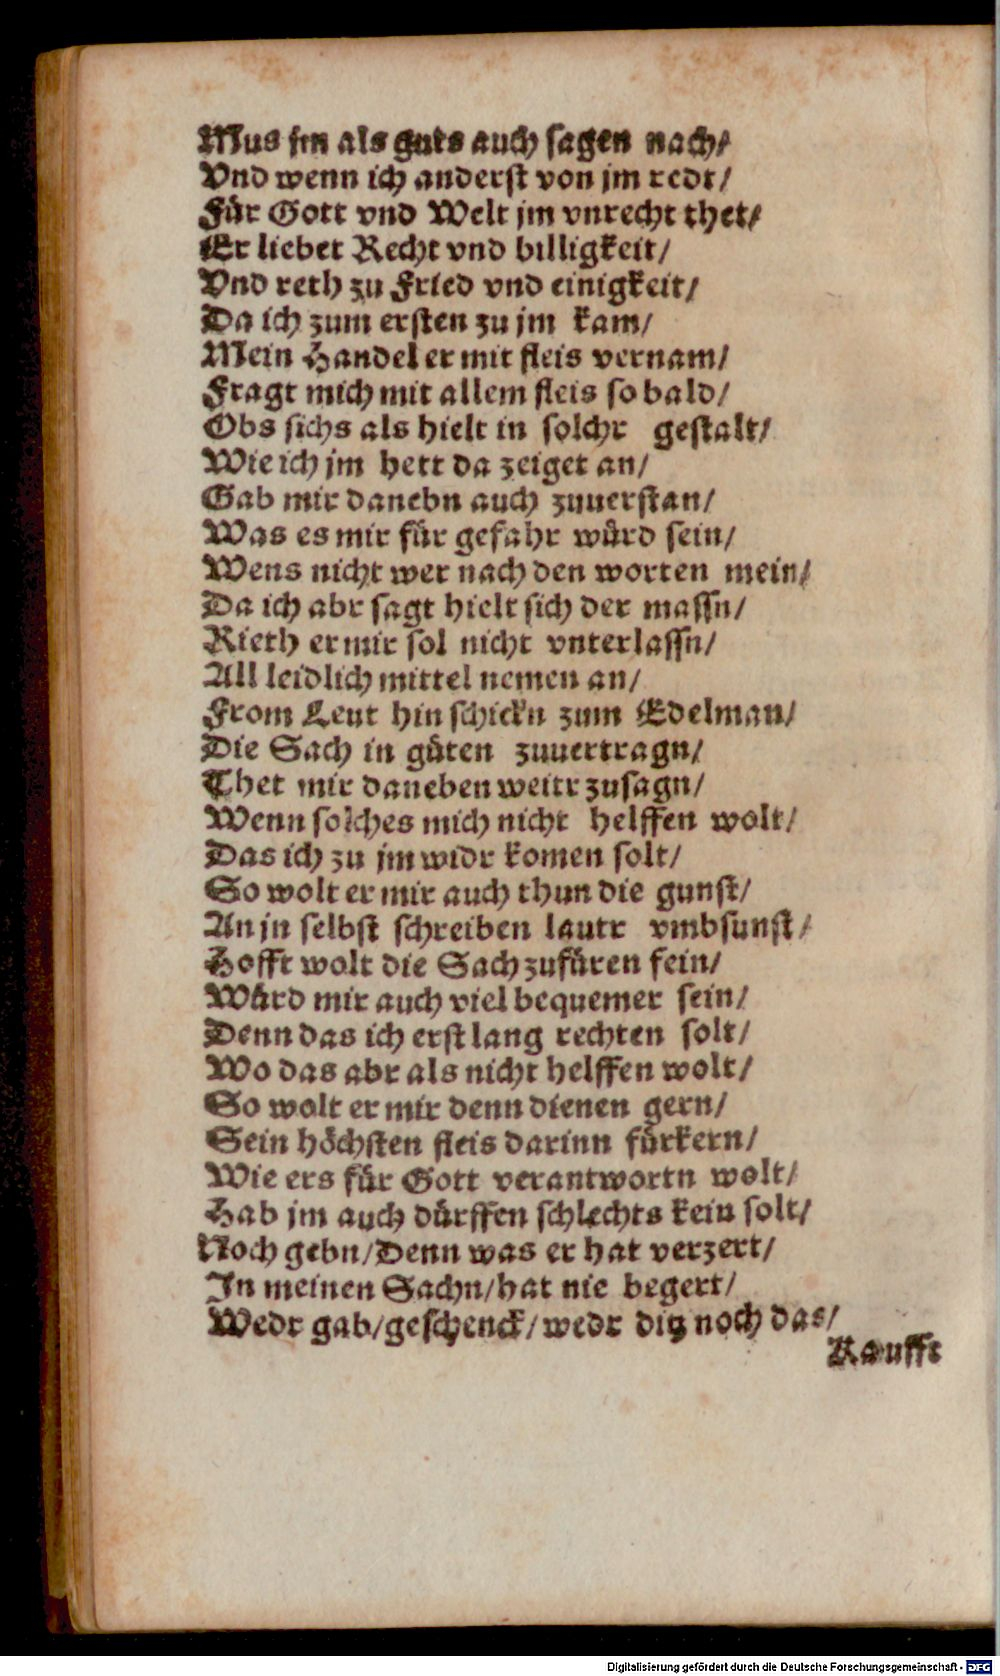 Mus jm als guts auch sagen nach/
Vnd wenn ich anderst von jm redt/
Für Gott vnd Welt jm vnrecht thet/
Er liebet Recht vnd billigkeit/
Vnd reth zu Fried vnd einigkeit/
Da ich zum ersten zu jm kam/
Mein Handel er mit fleis vernam/
Fragt mich mit allem fleis so bald/
Obs sichs als hielt in solchr gestalt/
Wie ich jm hett da zeiget an/
Gab mir danebn auch zuuerstan/
Was es mir für gefahr würd sein/
Wens nicht wer nach den worten mein/
Da ich abr sagt hielt sich der massn/
Rieth er mir sol nicht vnterlassn/
All leidlich mittel nemen an/
From Leut hin schickn zum Edelman/
Die Sach in güten zuuertragn/
Thet mir daneben weitr zusagn/
Wenn solches mich nicht helffen wolt/
Das ich zu jm widr komen solt/
So wolt er mir auch thun die gunst/
An jn selbst schreiben lautr vmbsunst/
Hofft wolt die Sach zufüren fein/
Würd mir auch viel bequemer sein/
Denn das ich erst lang rechten solt/
Wo das abr als nicht helffen wolt/
So wolt er mir denn dienen gern/
Sein höchsten fleis darinn fürkern/
Wie ers für Gott verantwortn wolt/
Hab jm auch dürffen schlechts kein solt/
Noch gebn/Denn was er hat verzert/
In meinen Sachn/hat nie begert/
Wedr gab/geschenck/wedr ditz noch das/
Kaufft
Digitalisierung gefördert durch die Deutsche Forschungsgemeinschaft - DFG